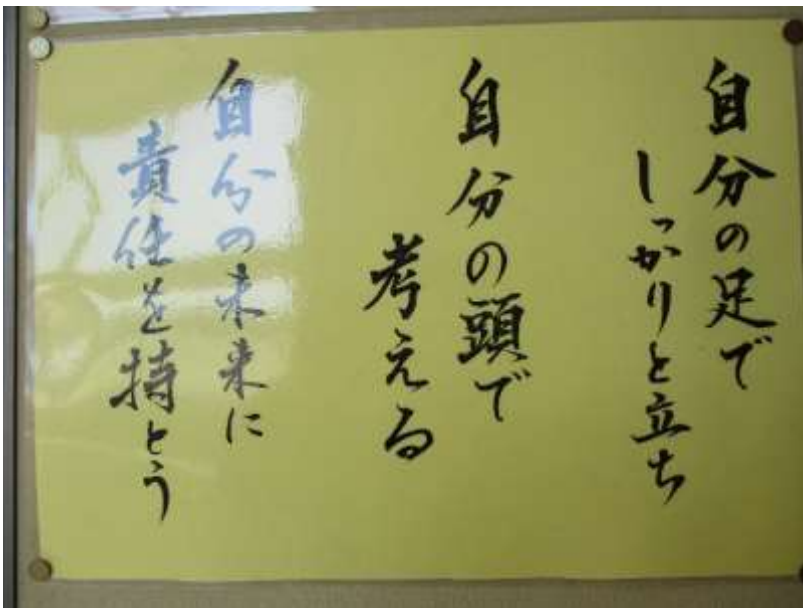 自分の足で
しっかりと立ち
自分の頭で
考える
自分の未来に
責任を持とう